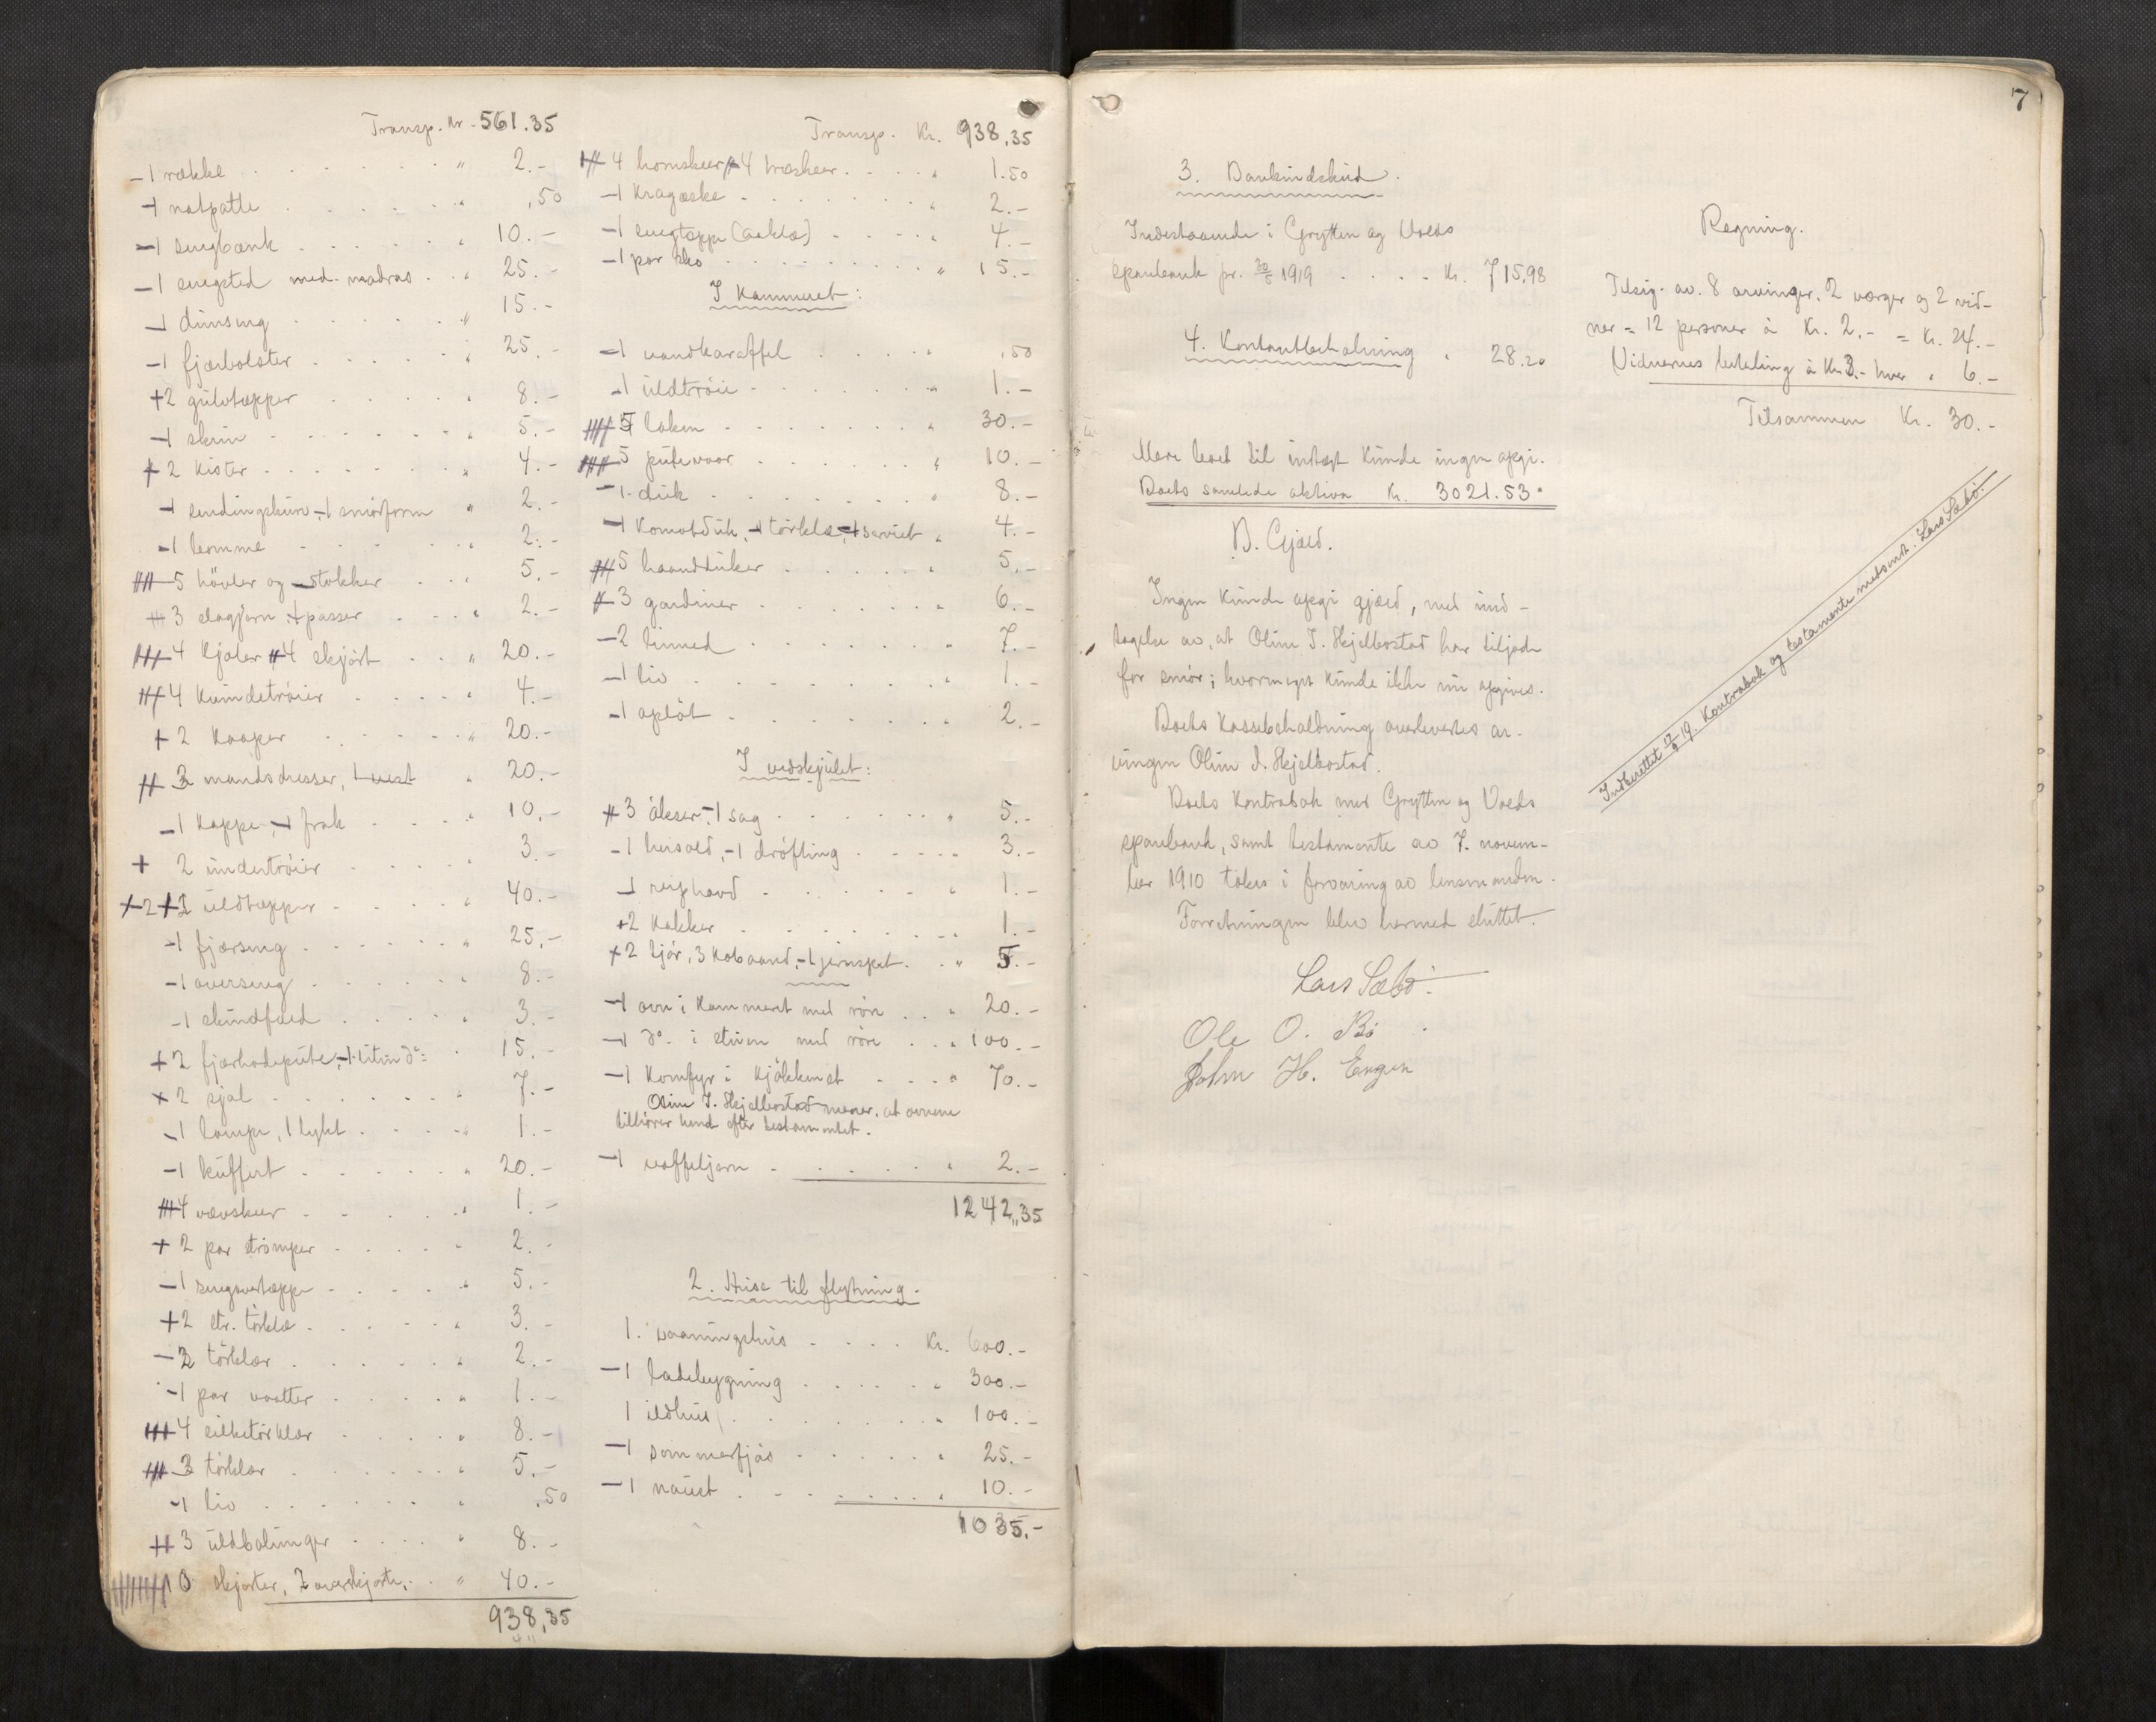 Transp. Kr. 561.35
1 række " 2.-
1 notpotte " ,50
1 sengbænk " 10.-
1 sengsted med madras " 25.-
1 dunseng " 15.-
1 fjærbolster " 25.-
2 gulvtepper " 8.-
1 skrin " 5.-
2 kister " 4.-
1 sendingskurv, 1 smörform " 2.-
1 komme " 2.-
5 hövler og stokker " 5.-
3 slagjern, passer " 2.-
4 kjoler 4 skjört " 20.-
4 kvindetröier " 4.-
2 kaaper " 20.-
3 mandsdresser, 1 vest " 20.-
1 kappe, 1 frak 10.-
2 undertröier 3.-
2 uldtepper " 40.-
1 fjærseng " 25.-
1 overseng " 8.-
1 skindfeld 3.-
2 fjærhodepute, 1 liten do 15.-
2 sjal 7.-
1 lampe, 1 lykt " 1.-
1 kuffert " 20.-
4 vævskeer " 1.-
2 par strömper " 2.-
1 sengovertæppe " 5.-
2 str. törklæ " 3.-
2 törklær " 2.-
1 par vatter " 1.-
4 silketörklær " 8.-
3 törklær " 5.-
1 liv " ,50
3 uldbolinger " 8.-
10 skjorter, 2 overskjorte " 40.-
938,35
Transp. Kr. 938,35
4 hornskeer 4 træskeer " 1.50
1 kragæske " 2.-
1 sengtæppe (aaklæ) " 4.-
1 par sko " 15.-
I kammeret:
1 vandkaraffel " ,50
1 uldtröie " 1.-
5 laken " 30.-
5 putevaar " 10.-
1 duk " 8.-
1 komodduk, 1 törklæ, 1 serviet " 4.-
5 haandduker " 5.-
3 gardiner " 6.-
2 linned " 7.-
1 liv " 1.-
1 oplöt " 2.-
I vedskjulet:
3 økser, 1 sag " 5.-
1 hersold, 1 dröfting " 3.-
1 reiphand " 1.-
2 kakker " 1.-
2 ljör, 3 kobaand, 1 jernspet " 5.-
1 ovn i kammeret med röre " 20.-
1 do. i stuen med röre " 100.-
1 komfyr i kjökkenet " 70.-
Oline J. Hjelbostad mener, at ovnene
tilhörer hende efter testamentet.
1 vaffeljern " 2.-
1242,35
2. Huse til flytning.
1 vaaningshus Kr. 600.-
1 ladebygning " 300.-
1 ildhus " 100.-
1 sommerfjös " 25.-
1 naust " 10.-
1035.-
7
3. Bankindskud.
Indestaaende i Grytten og Voeds
sparebank pr. 30/5 1919 Kr. 715.98
4. Kontantbeholdning " 28.20
Mere boet til indtægt kunde ingen opgi.
Boets samlede aktiva Kr. 3021.53.
B. Gjæld.
Ingen kunde opgi gjæld, med und-
tagelse av, at Oline J. Hjelbostad har tilgode
for smör; hvormeget kunde ikke nu opgives.
Boets kassebeholdning overlevertes ar-
vingen Oline J. Hjelbostad.
Boets kontrabok med Grytten og Voeds
sparebank, samt testamente av 7. novem-
ber 1910 tokes i forvaring av lensmanden.
Forretningen blev hermed sluttet.
Lars Sæbö.
Ole O. Bö
John H. Engen
Regning.
Tilsig. av. 8 arvinger, 2 værger og 2 vid-
ner = 12 personer à Kr. 2.- = Kr. 24.-
Vidnernes betaling à Kr. 3.- hver " 6.-
Tilsammen Kr. 30.-
Indberettet 17/9 19. Kontrabok og testamente medsendt. Lars Sæbö.